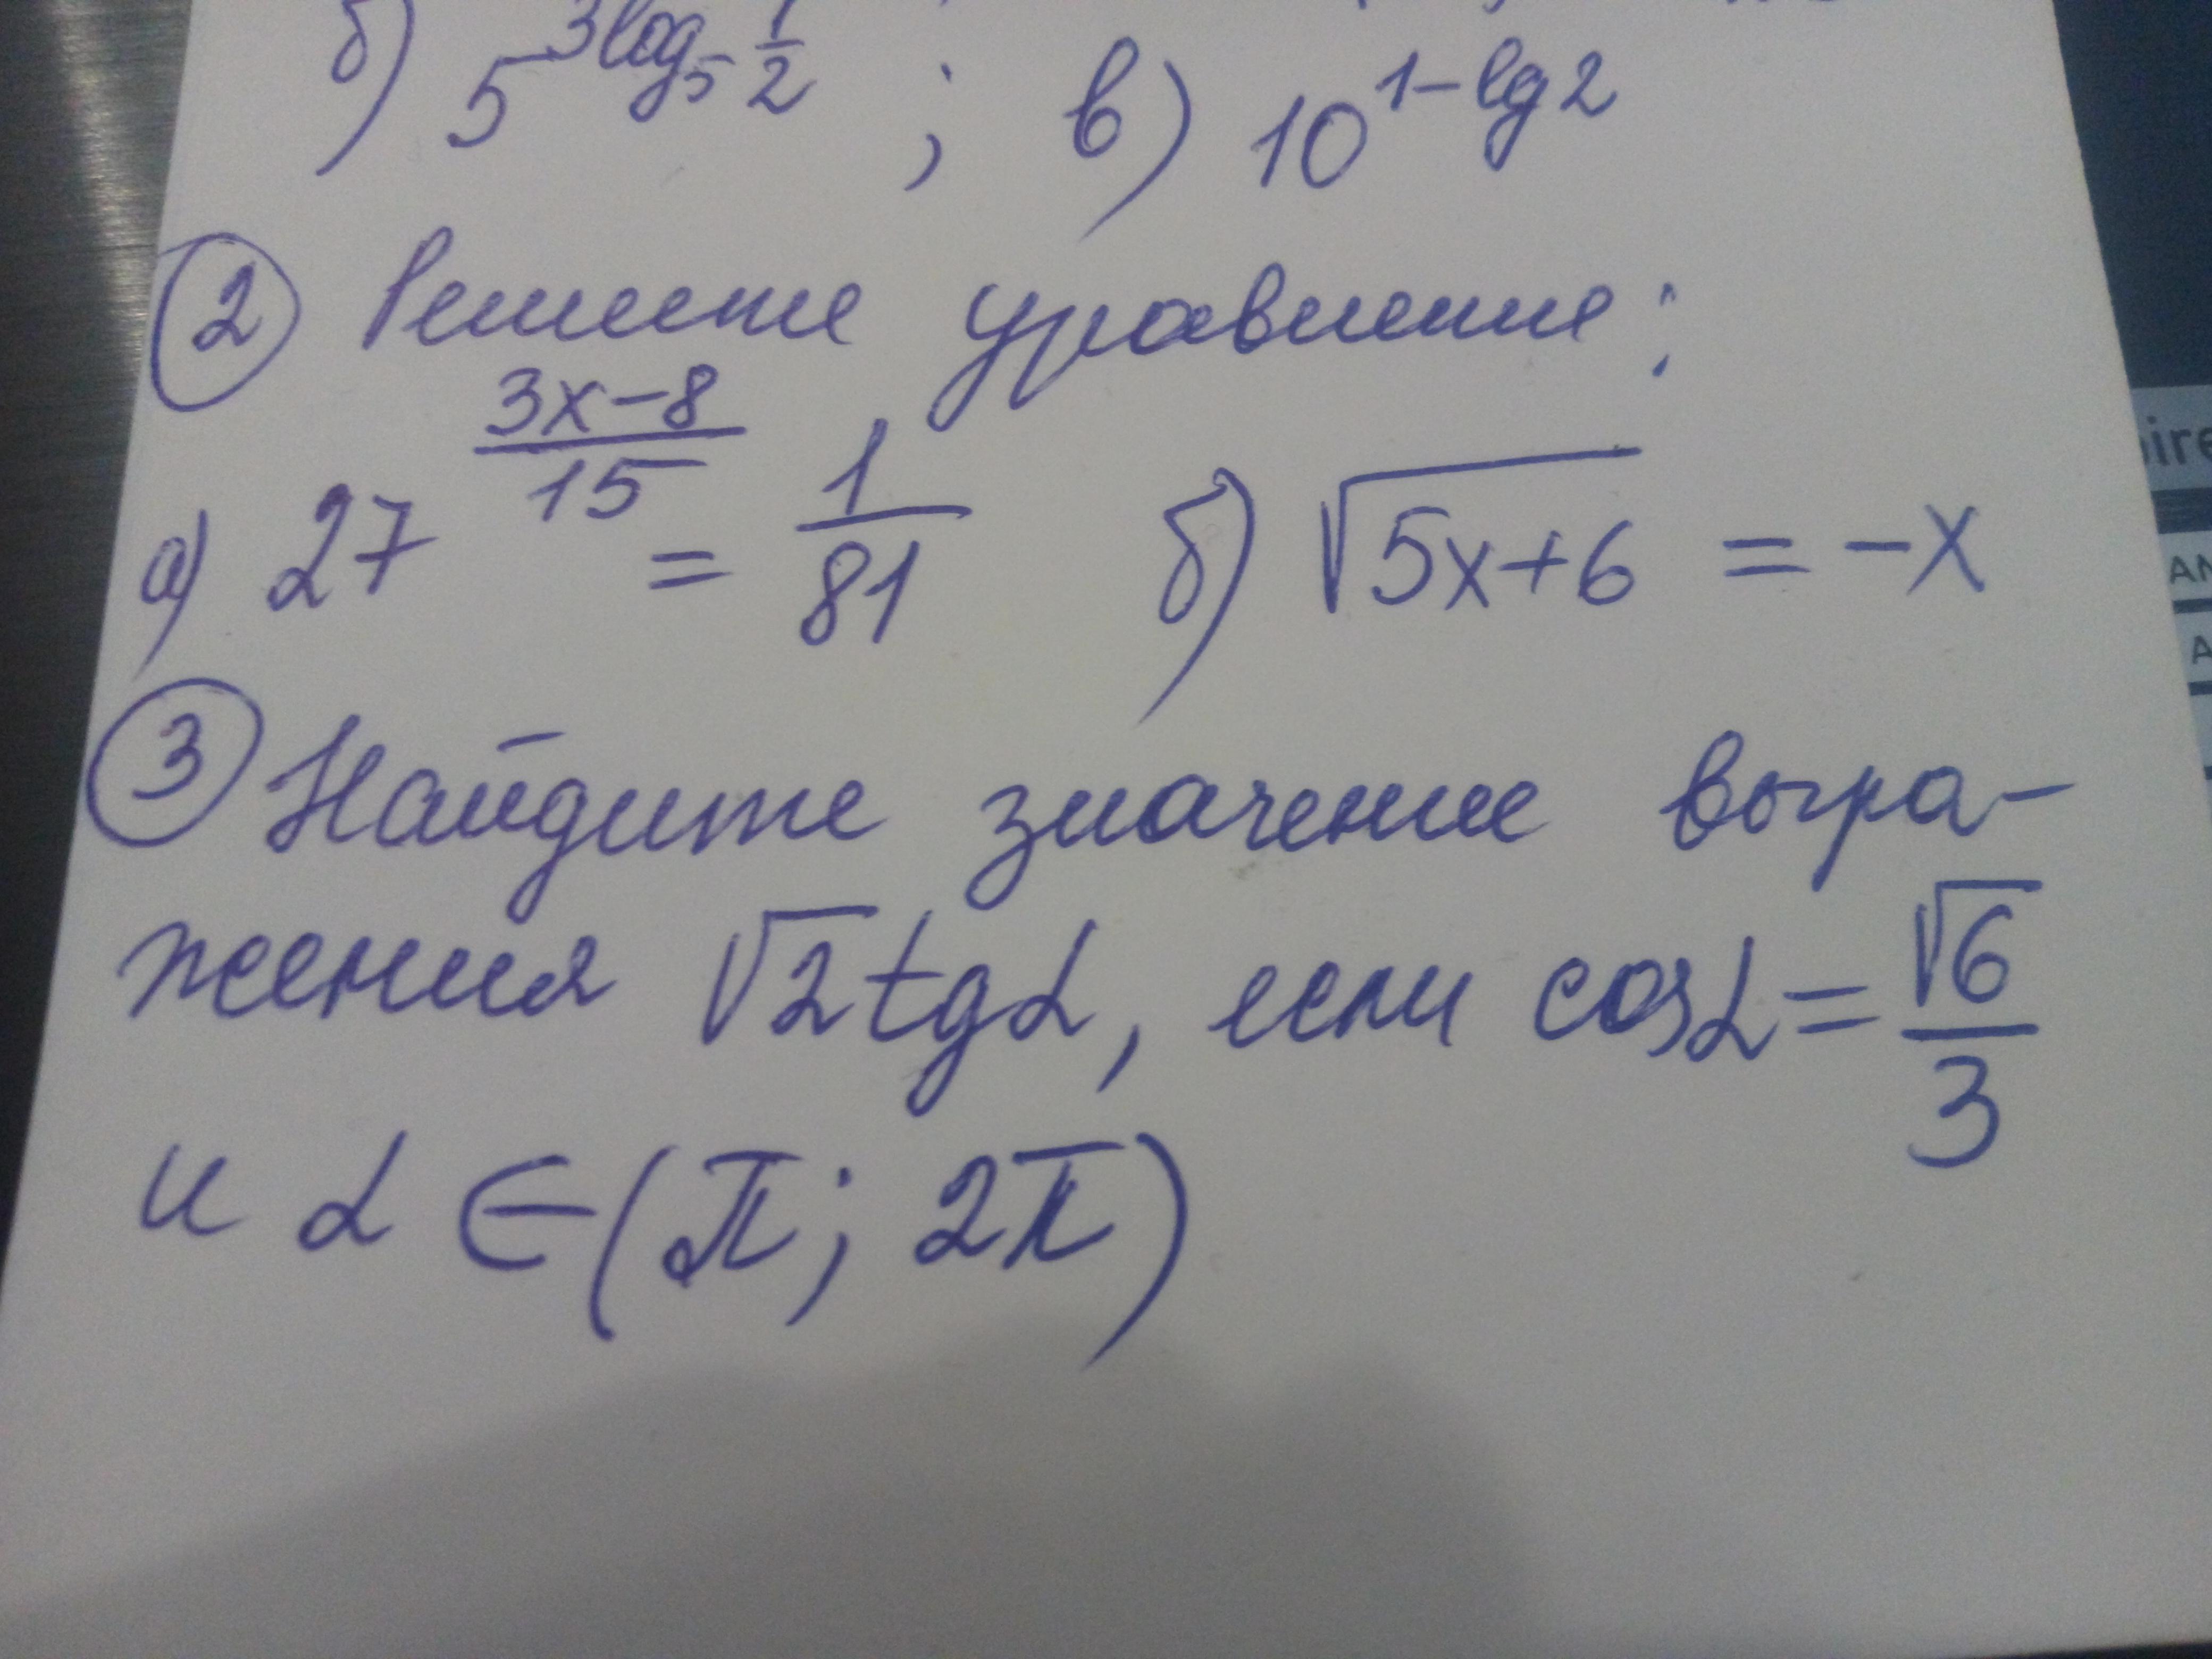 б) 5^{3log_5 1/2} ; в) 10^{1-lg2}
② Решите уравнение:
а) 27^{(3x-8)/15} = 1/81 б) √(5x+6) = -x
③ Найдите значение выра-
жения √2 tgα, если cosα = √6/3
и α ∈ (π; 2π)